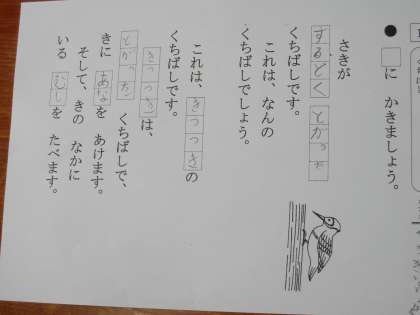 ●□に かきましょう。
さきが
するどく とがった
くちばしです。
これは、なんの
くちばしでしょう。
これは、きつつきの
くちばしです。
きつつきは、
とがった くちばしで、
きに あなを あけます。
そして、きの なかに
いる むしを たべます。